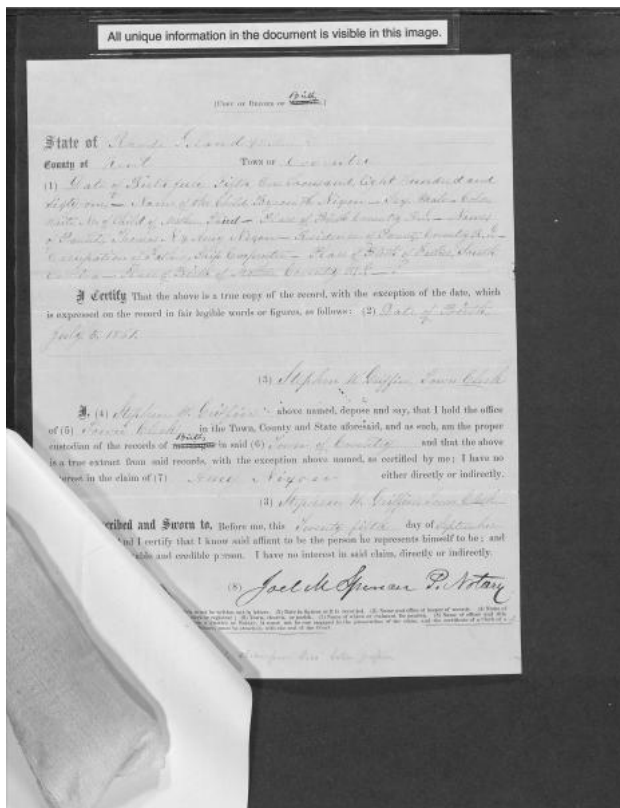 All unique information in the document is visible in this image.
[COPY OF RECORD OF Birth.]
State of Rhode Island
County of Kent TOWN OF Coventry
(1) Date of Birth June Fifth One thousand Eight hundred and
Sixty one — Name of the Child Byron H Nixon — Sex Male — Color
White No of Child of Mother — Place of Birth Coventry R.I. — Names
of Parents Thomas N & Amy Nixon — Residence of Parents Coventry R.I. —
Occupation of Father, Ship Carpenter — Place of Birth of Father, South
— Place of Birth of Mother Coventry R.I.
I Certify That the above is a true copy of the record, with the exception of the date, which
is expressed on the record in fair legible words or figures, as follows: (2) Date of Birth
5. 1861.
(3) Stephen W. Griffin Town Clerk
I, (4) Stephen W. Griffin above named, depose and say, that I hold the office
of (5) Town Clerk in the Town, County and State aforesaid, and as such, am the proper
custodian of the records of Births in said (6) Town of Coventry and that the above
is a true extract from said records, with the exception above named, as certified by me; I have no
terest in the claim of (7) Amy Nixon either directly or indirectly.
(3) Stephen W. Griffin Town Clerk
cribed and Sworn to, Before me, this Twenty fifth day of September
nd I certify that I know said affiant to be the person he represents himself to be; and
able and credible person. I have no interest in said claim, directly or indirectly.
(8) Joel M Spencer P. Notary